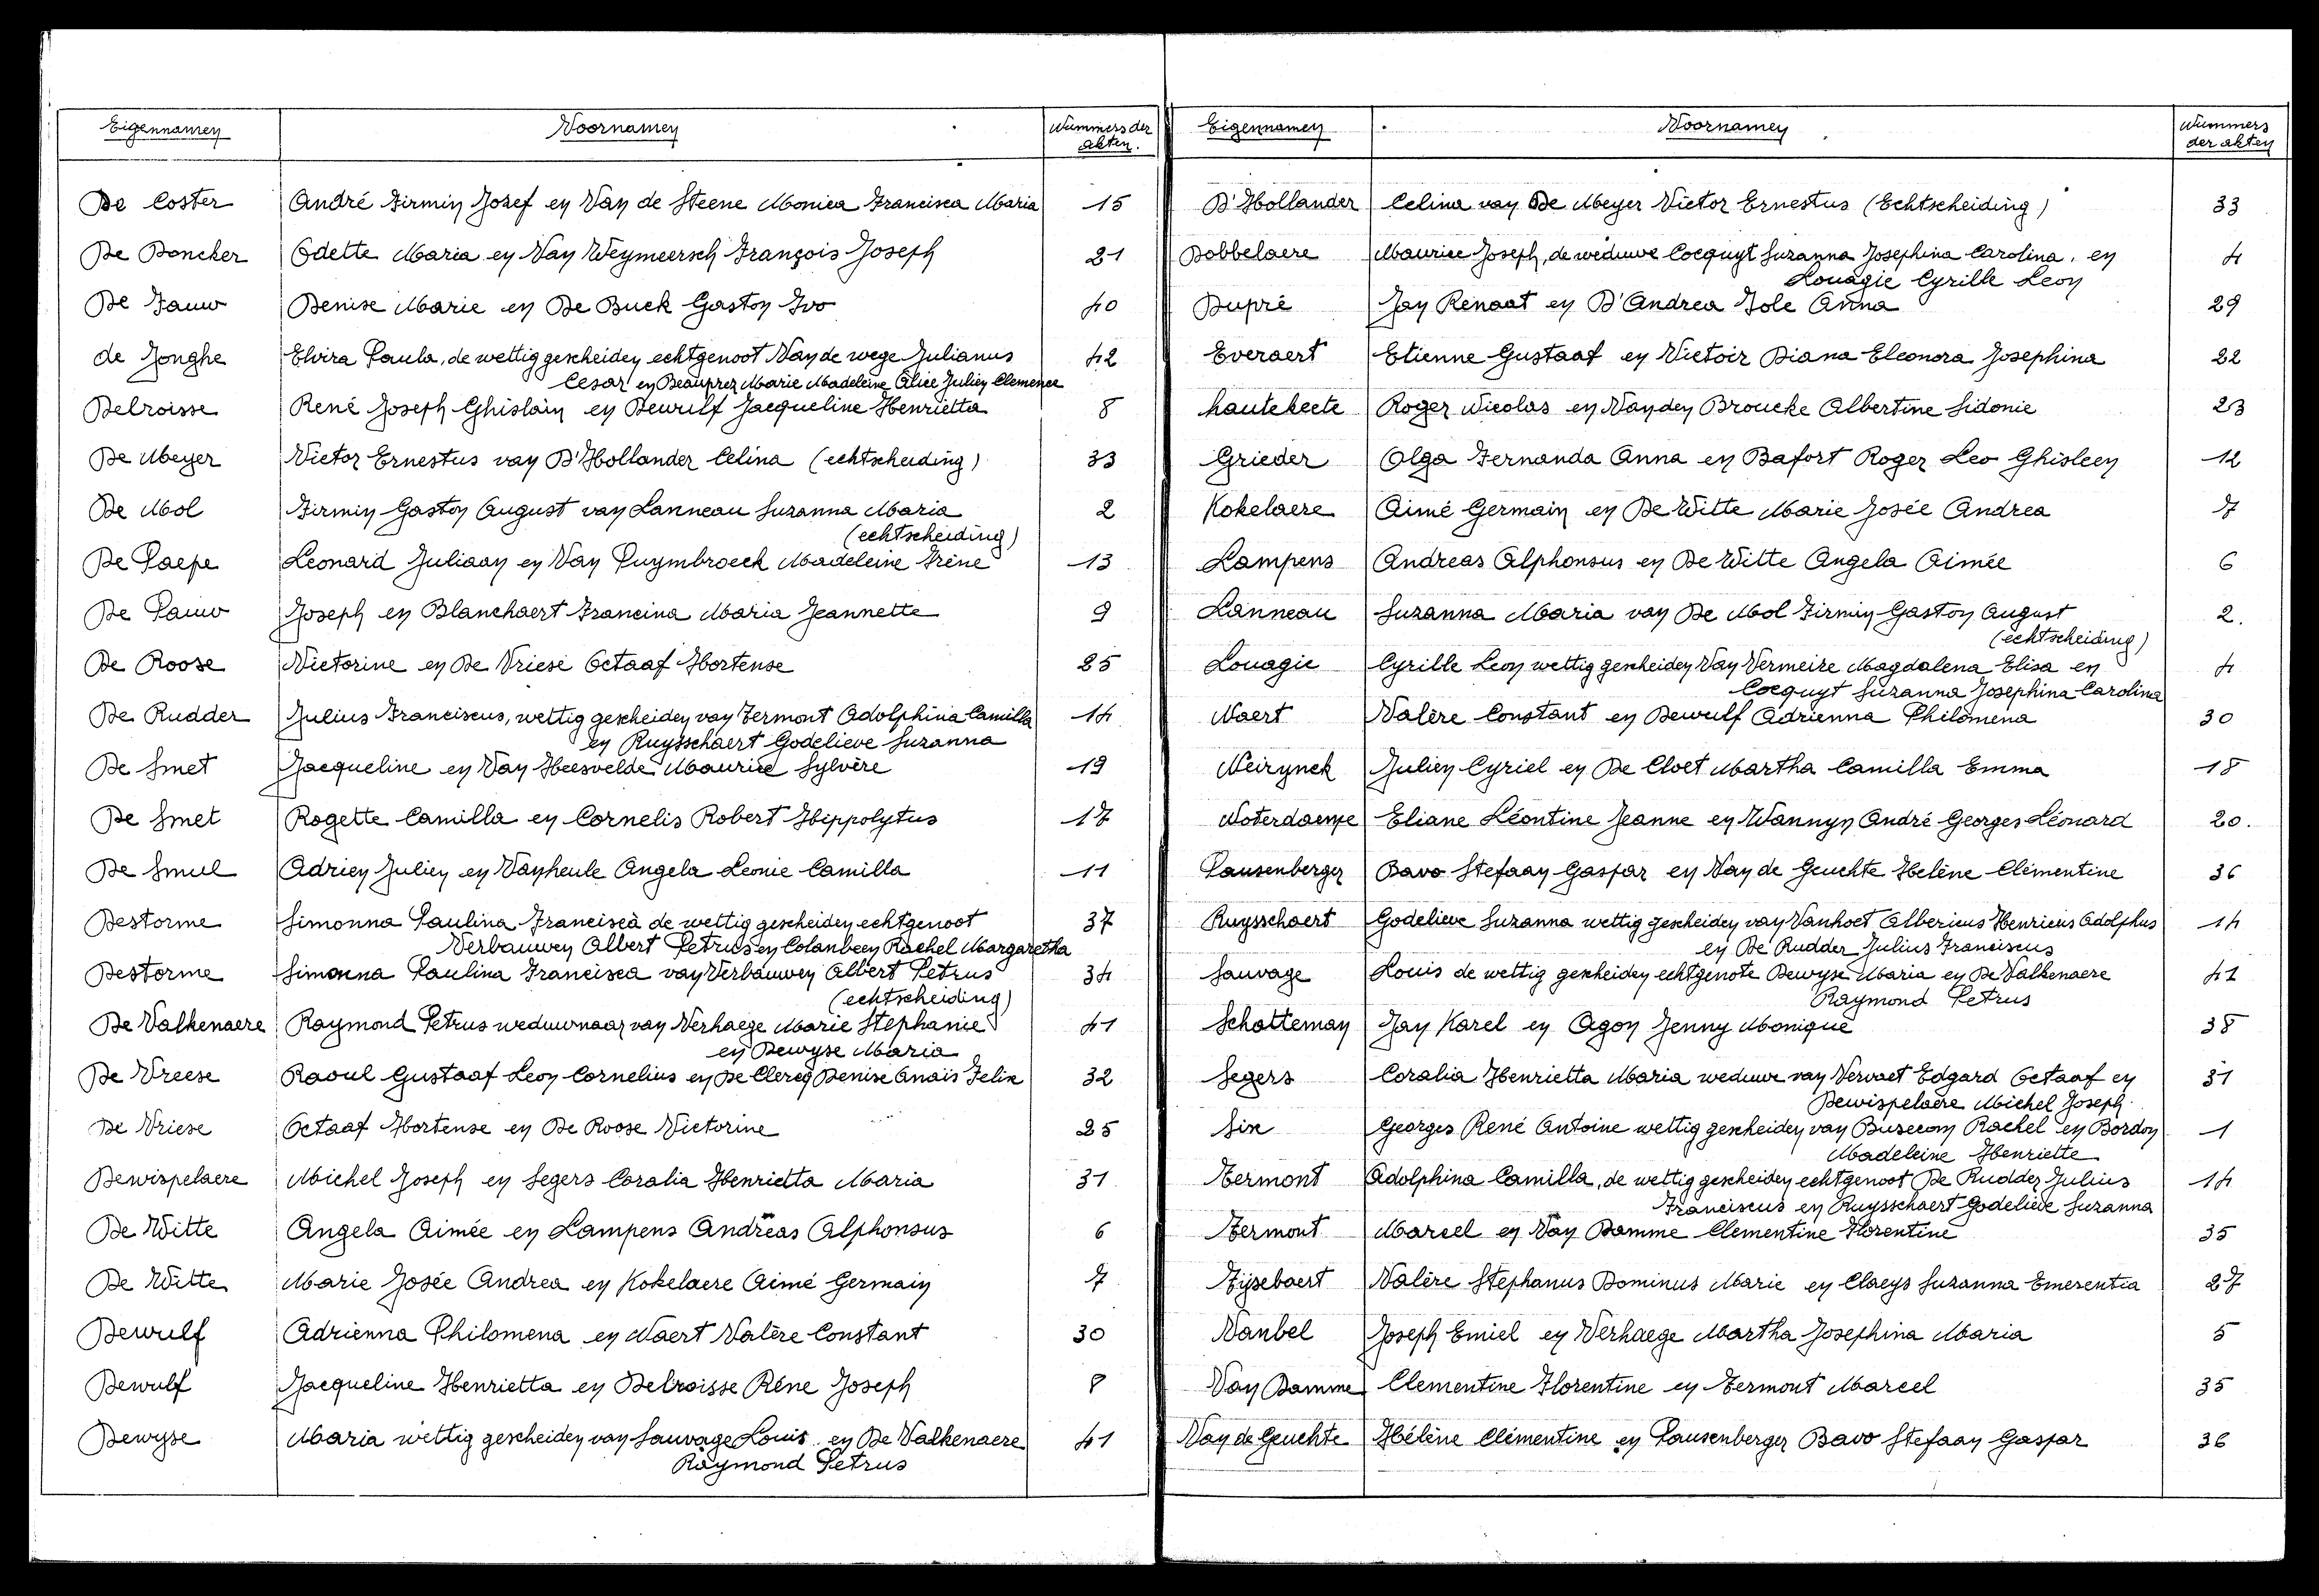 Eigennamen Voornamen Nummers der akten.
De Coster André Firmin Jozef en Van de Steene Monica Francisca Maria 15
De Doncker Odette Maria en Van Weymeersch François Joseph 21
De Fauw Denise Marie en De Buck Gaston Ivo 40
de Jonghe Elvira Paula, de wettig gescheiden echtgenoot Van de wege Julianus 42
Cesar en Beauprez Marie Madeleine Alice Julien Clemence
Delroisse René Joseph Ghislain en Dewulf Jacqueline Henrietta 8
De Meyer Victor Ernestus van D'Hollander Celina (echtscheiding) 33
De Mol Firmin Gaston August van Lanneau Suzanna Maria 2
(echtscheiding)
De Paepe Leonard Juliaan en Van Puymbroeck Madeleine Irène 13
De Pauw Joseph en Blanchaert Francina Maria Jeannette 9
De Roose Victorine en De Vriese Octaaf Hortense 25
De Rudder Julius Franciscus, wettig gescheiden van Termont Adolphina Camilla 14
en Ruysschaert Godelieve Suzanna
De Smet Jacqueline en Van Heesvelde Maurice Sylvère 19
De Smet Rogette Camilla en Cornelis Robert Hippolytus 17
De Smul Adrien Julien en Vanheule Angela Leonie Camilla 11
Destorme Simonna Paulina Francisca de wettig gescheiden echtgenoot 37
Verbauwen Albert Petrus en Colanbeen Rachel Margaretha
Destorme Simonna Paulina Francisca van Verbauwen Albert Petrus 34
(echtscheiding)
De Valkenaere Raymond Petrus weduwnaar van Verhaege Marie Stephanie 41
en Dewyse Maria
De Vreese Raoul Gustaaf Leon Cornelius en De Clercq Denise Anaïs Felix 32
De Vriese Octaaf Hortense en De Roose Victorine 25
Dewispelaere Michel Joseph en Segers Coralia Henrietta Maria 31
De Witte Angela Aimée en Lampens Andreas Alphonsus 6
De Witte Marie Josée Andrea en Kokelaere Aimé Germain 7
Dewulf Adrienna Philomena en Naert Valère Constant 30
Dewulf Jacqueline Henrietta en Delroisse Réne Joseph 8
Dewyse Maria wettig gescheiden van Sauvage Louis en De Valkenaere 41
Raymond Petrus
Eigennamen Voornamen Nummers der akten
D'Hollander Celina van De Meyer Victor Ernestus (Echtscheiding) 33
Dobbelaere Maurice Joseph, de weduwe Cocquyt Suzanna Josephina Carolina, en 4
Louagie Cyrille Leon
Dupré Jan Renaat en D'Andrea Iole Anna 29
Everaert Etienne Gustaaf en Victoir Diana Eleonora Josephina 22
hautekeete Roger Nicolas en Vanden Broucke Albertine Sidonie 23
Grieder Olga Fernanda Anna en Dafort Roger Leo Ghisleen 12
Kokelaere Aimé Germain en De Witte Marie Josée Andrea 7
Lampens Andreas Alphonsus en De Witte Angela Aimée 6
Lanneau Suzanna Maria van De Mol Firmin Gaston August 2.
(echtscheiding)
Louagie Cyrille Leon wettig gescheiden Van Vermeire Magdalena Elisa en 4
Cocquyt Suzanna Josephina Carolina
Naert Valère Constant en Dewulf Adrienna Philomena 30
Neirynck Julien Cyriel en De Cloet Martha Camilla Emma 18
Noterdaeme Eliane Léontine Jeanne en Wannyn André Georges Léonard 20.
Pausenberger Bavo Stefaan Gaspar en Van de Geuchte Helène Clémentine 36
Ruysschaert Godelieve Suzanna wettig gescheiden van Vanhoet Albericus Henricus Adolphus 14
en De Rudder Julius Franciscus
Sauvage Louis de wettig gescheiden echtgenote Dewyse Maria en De Valkenaere 41
Raymond Petrus
Schatteman Jan Karel en Agon Jenny Monique 38
Segers Coralia Henrietta Maria weduwe van Vervaet Edgard Octaaf en 31
Dewispelaere Michel Joseph
Six Georges René Antoine wettig gescheiden van Rachel en Bordon 1
Madeleine Henriette
Termont Adolphina Camilla, de wettig gescheiden echtgenoot De Rudder Julius 14
Franciscus en Ruysschaert Godelieve Suzanna
Termont Marcel en Van Damme Clementine Florentine 35
Tijsebaert Valère Stephanus Dominus Marie en Claeys Suzanna Emerentia 27
Vanbel Joseph Emiel en Verhaege Martha Josephina Maria 5
Van Damme Clementine Florentine en Termont Marcel 35
Van de Geuchte Hélène Clémentine en Pausenberger Bavo Stefaan Gaspar 36